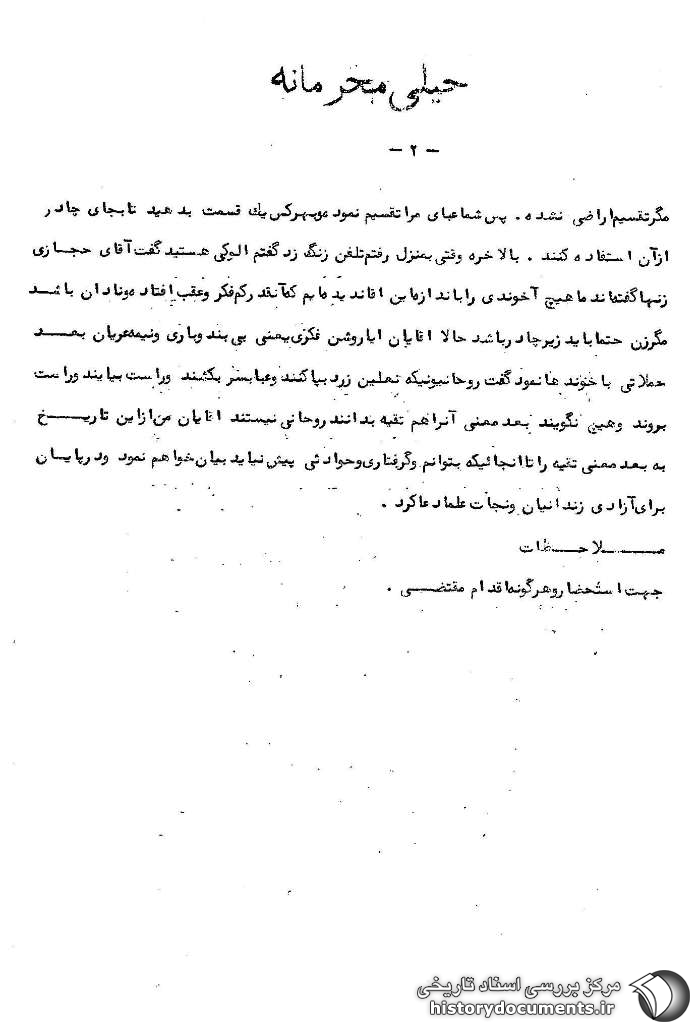 خیلی محرمانه
- ۲ -
مگر تقسیم اراضی نشده . پس شما عبای مرا تقسیم نموده و بهر کس یک قسمت بدهید تا بجای چادر
از آن استفاده کنند . بالاخره وقتی بمنزل رفتم تلفن زنگ زد گفتم الو کی هستید گفت آقای حجازی
زنها گفته‌اند ما هیچ آخوندی را باندازه این اقا ندیده‌ایم که آنقدر کم فکر و عقب افتاده و نادان باشد
مگر زن حتما باید زیر چادر باشد حالا اقایان ایا روشن فکری یعنی بی بند و باری و نیمه عریان بعد
حملاتی با خوند ها نمود گفت روحانیونیکه نعلین زرد بپا کنند و عبا بسر بکشند و راست بیایند و راست
بروند و هیچ نگویند بعد معنی آنرا هم تقیه بدانند روحانی نیستند اقایان من از این تاریخ
به بعد معنی تقیه را تا انجائیکه بتوانم و گرفتاری و حوادثی پیش نیاید بیان خواهم نمود و در پایان
برای آزادی زندانیان و نجات علما دعا کرد .
ملاحظات
جهت استحضار و هرگونه اقدام مقتضی .
مرکز بررسی اسناد تاریخی
historydocuments.ir